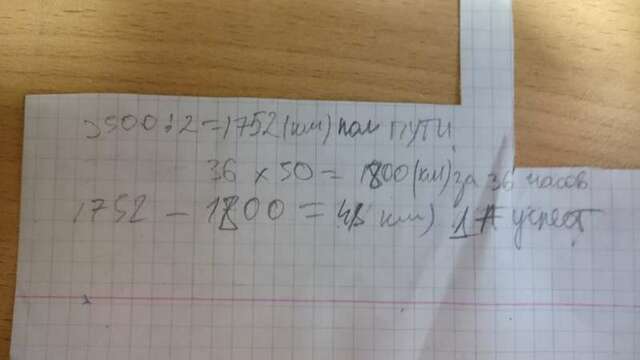 3500:2=1752(км) пол ПУТИ
36 × 50 = 1800(км) за 36 часов
1752 - 1800 = 48 км)